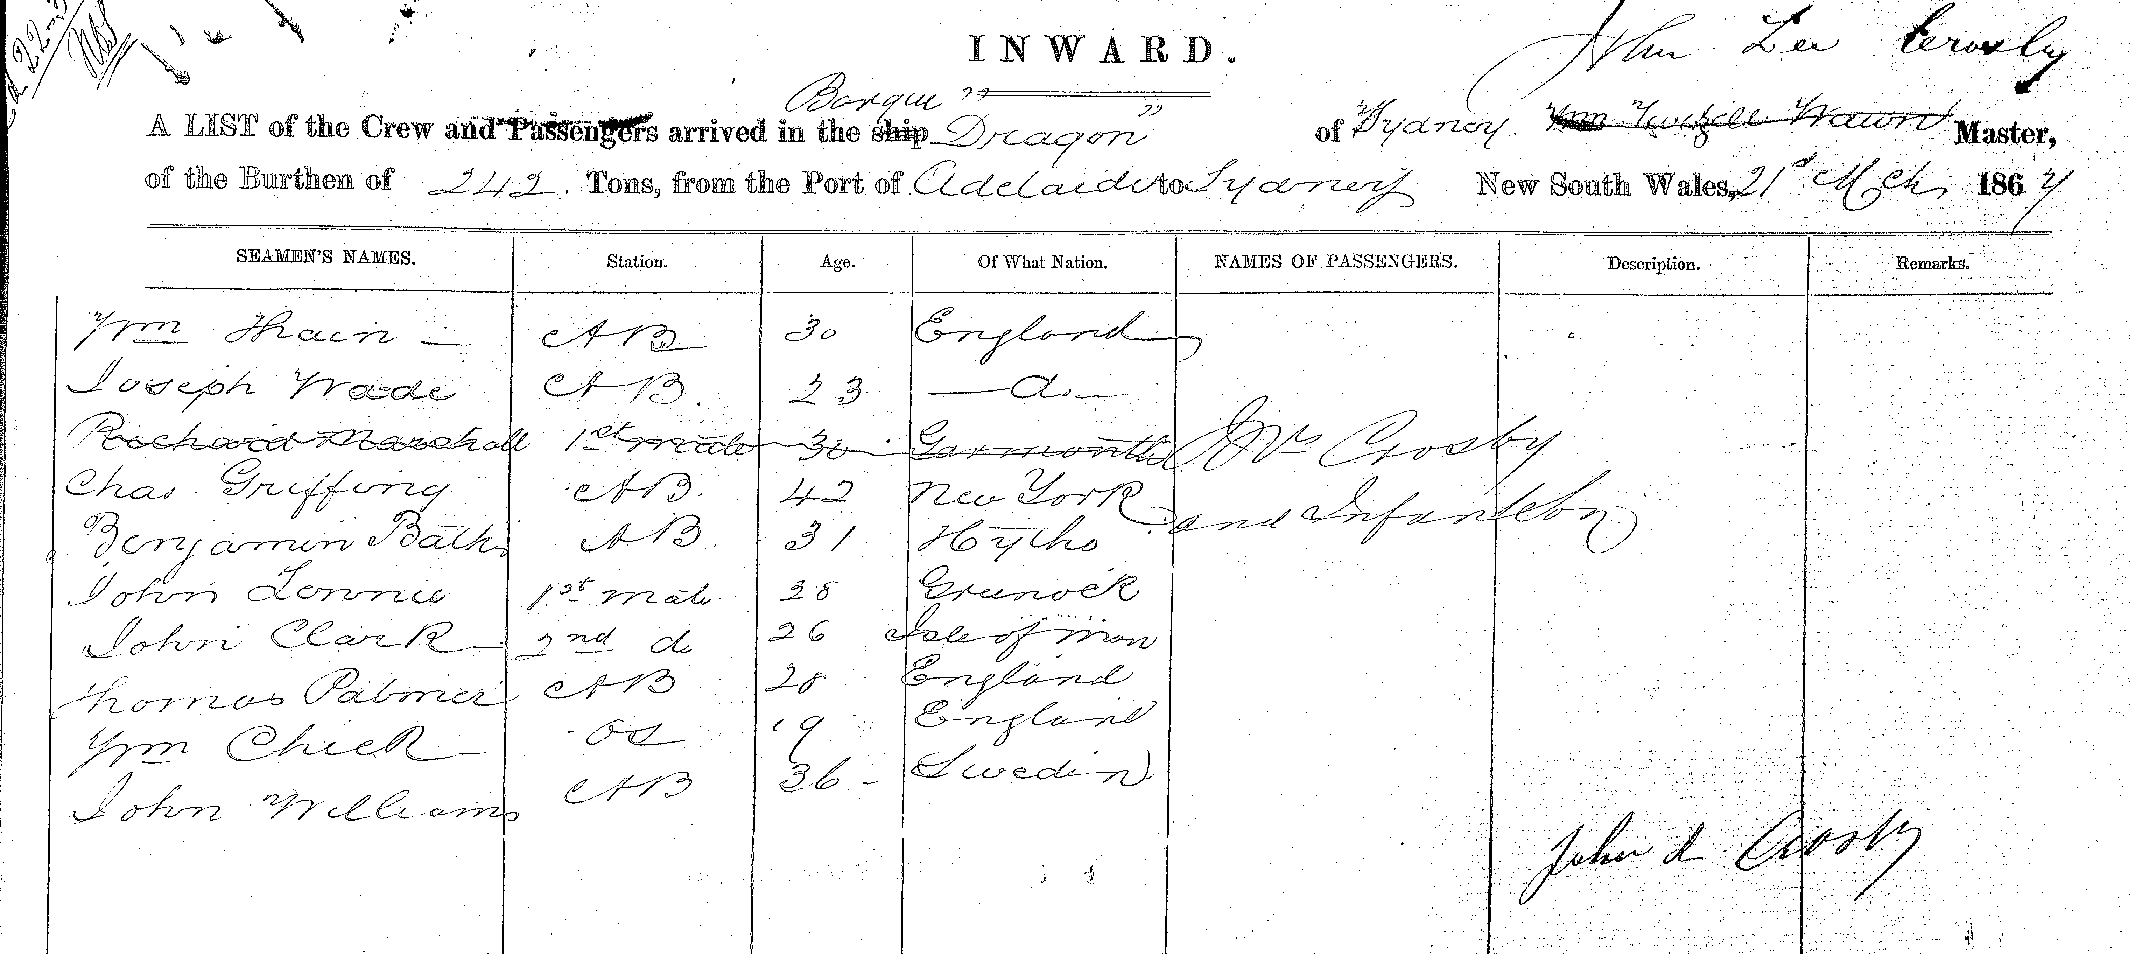 INWARD.
John Lee Crosby
Barque
A LIST of the Crew and Passengers arrived in the ship "Dragon" of Sydney Wm Wawn Master,
of the Burthen of 242 Tons, from the Port of Adelaide to Sydney New South Wales, 21st Mch 1867
SEAMEN'S NAMES. Station. Age. Of What Nation. NAMES OF PASSENGERS. Description. Remarks.
Wm Thain AB 30 England
Joseph Wade AB. 23 do
Richard Marshall 1st mate 30 Garmouth Mrs Crosby
Chas. Griffing AB. 42 New York
and Infant boy
Benjamin Baths AB. 31 Hythe
John Lennie 1st mate 28 Greenock
John Clark 2nd do 26 Isle of Man
Thomas Palmer AB 28 England
Wm Chick OS 19 England
John Williams AB 36 Sweden
John L Crosby